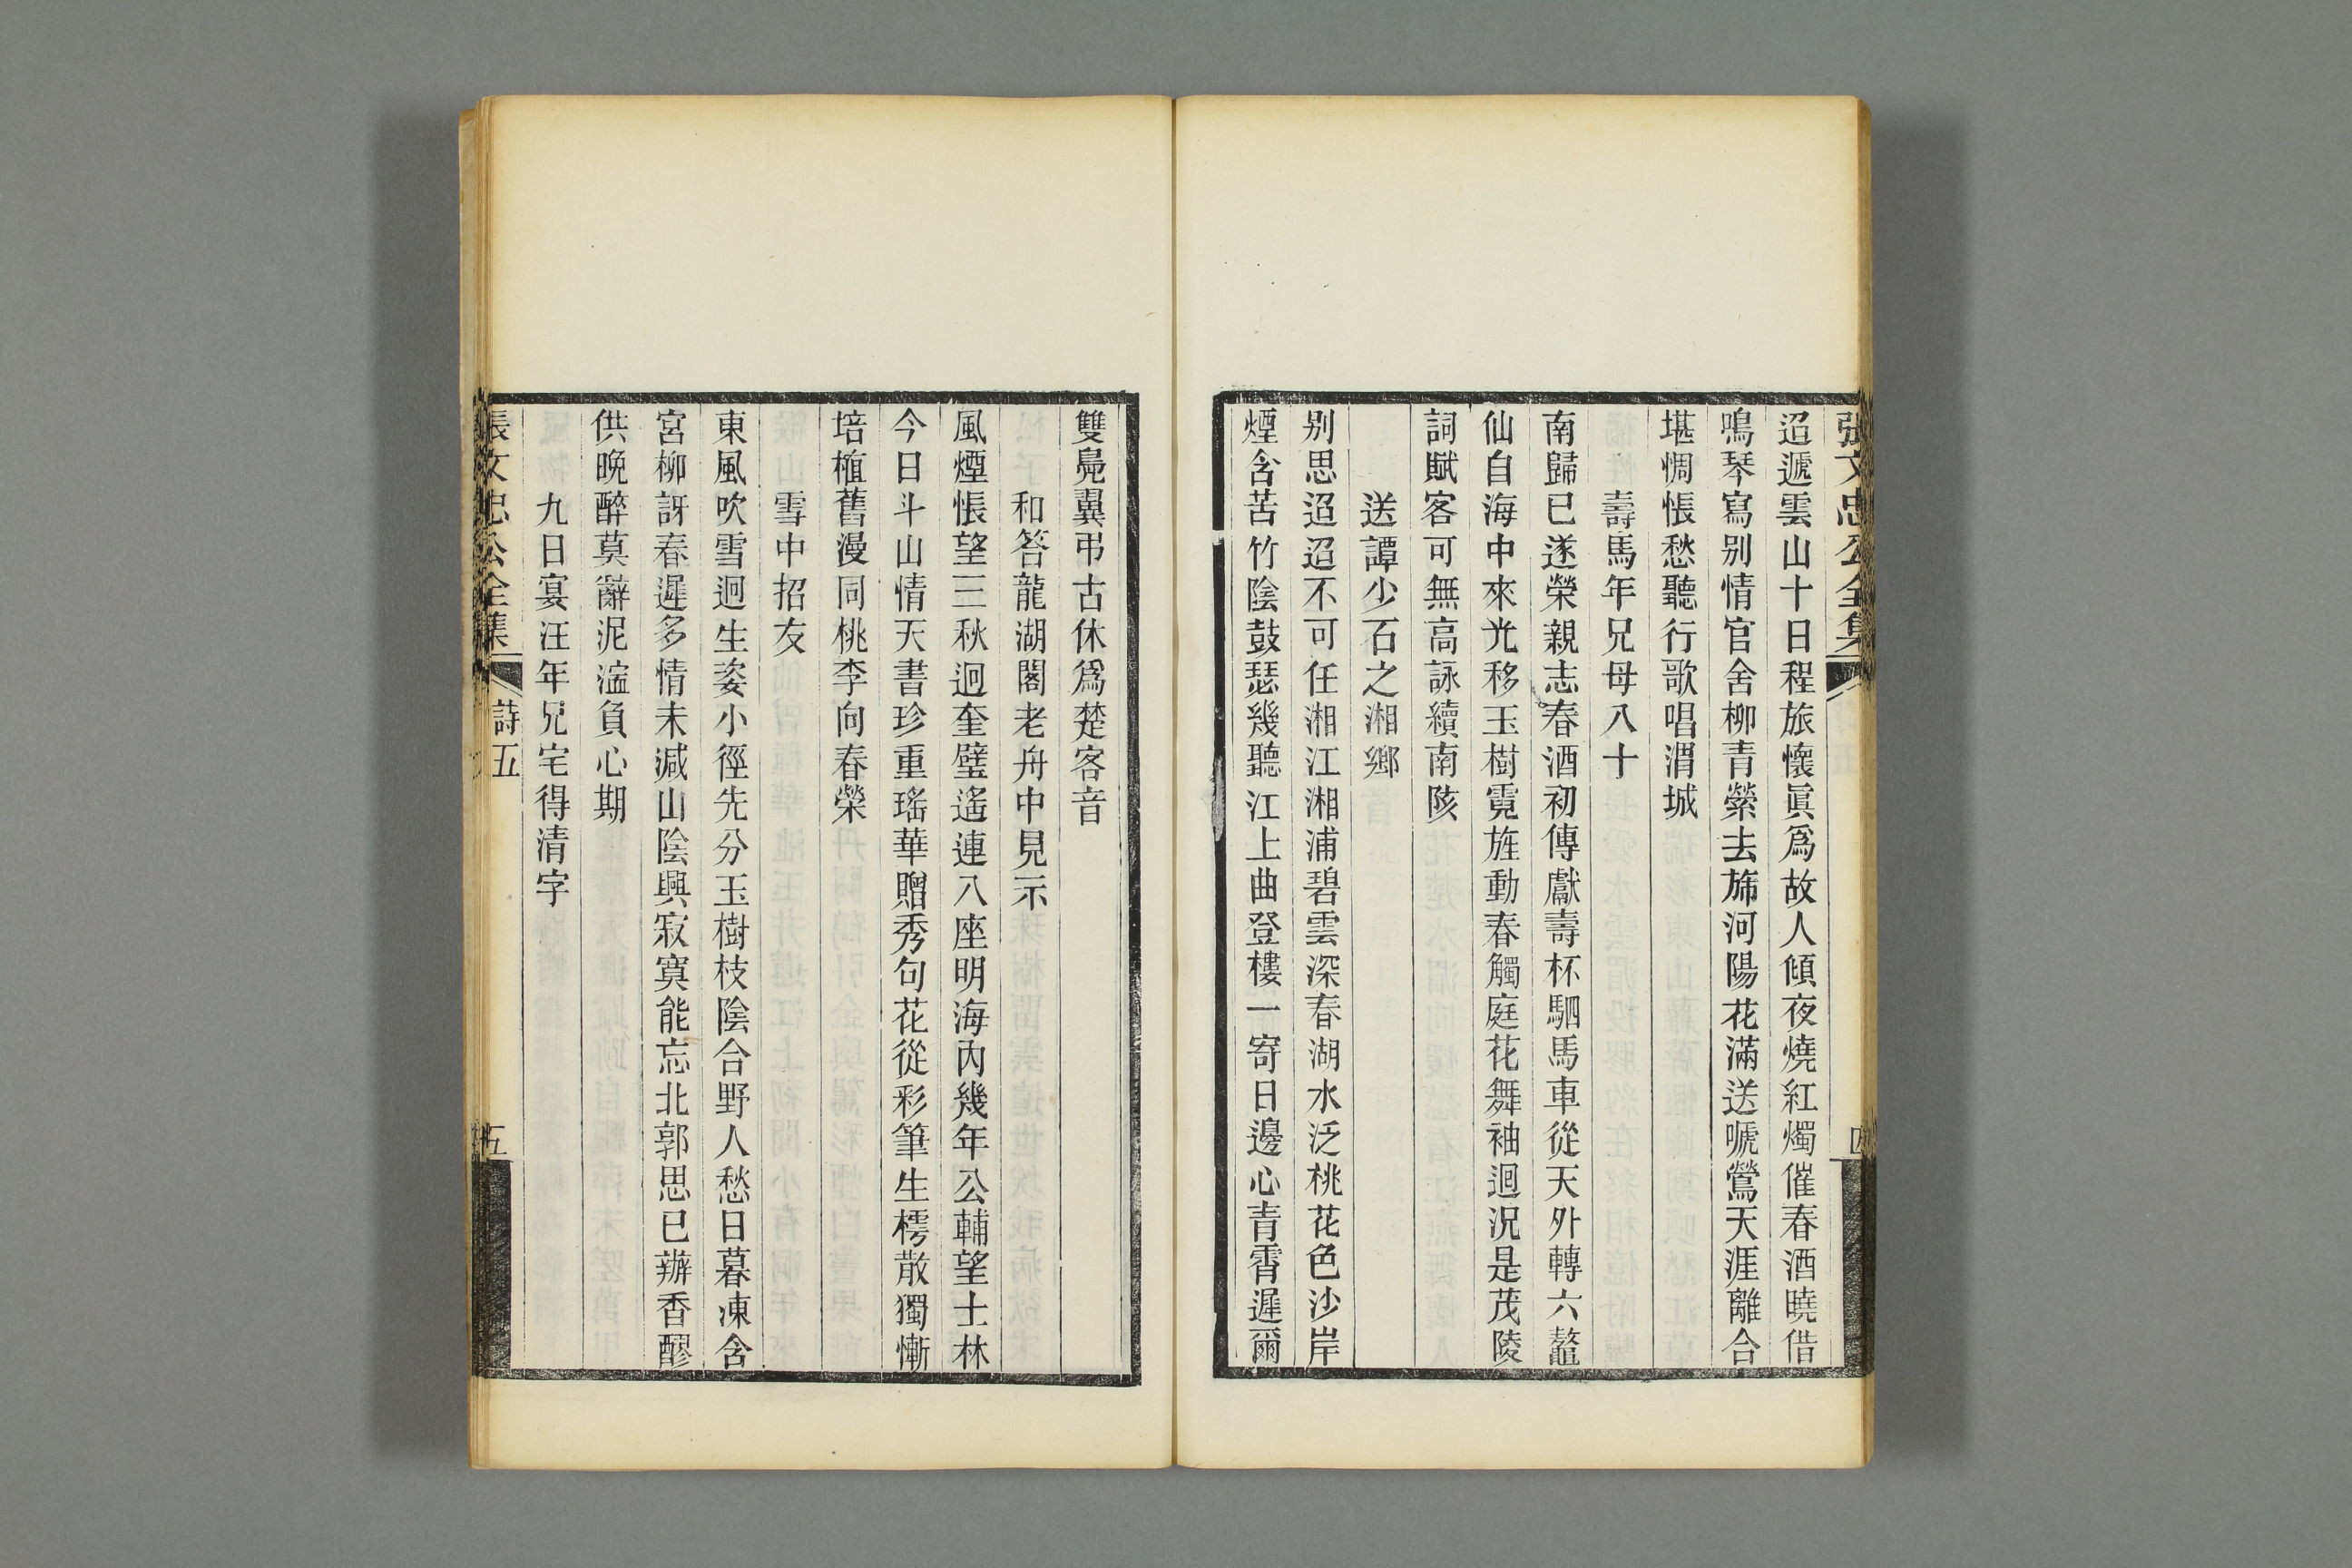 張文忠公全集
四
迢遞雲山十日程旅懷眞爲故人傾夜燒紅燭催春酒曉借
鳴琴寫别情官舍柳青縈去斾河陽花滿送嗁鶯天涯離合
堪惆悵愁聽行歌唱渭城
壽馬年兄母八十
南歸已遂榮親志春酒初傳獻壽杯駟馬車從天外轉六鼇
仙自海中來光移玉樹霓旌動春觸庭花舞袖迴況是茂陵
詞賦客可無高詠續南陔
送譚少石之湘鄉
别思迢迢不可任湘江湘浦碧雲深春湖水泛桃花色沙岸
煙含苦竹陰鼓瑟幾聽江上曲登樓一寄日邊心青霄遲爾
雙鳧翼弔古休爲楚客音
和答龍湖閣老舟中見示
風煙悵望三秋迥奎璧遙連八座明海內幾年公輔望士林
今日斗山情天書珍重瑤華贈秀句花從彩筆生樗散獨慚
培植舊漫同桃李向春榮
雪中招友
東風吹雪迴生姿小徑先分玉樹枝陰合野人愁日暮凍含
宮柳訝春遲多情未減山陰興寂寞能忘北郭思已辦香醪
供晚醉莫辭泥濘負心期
九日宴汪年兄宅得清字
張文忠公全集
詩五
五